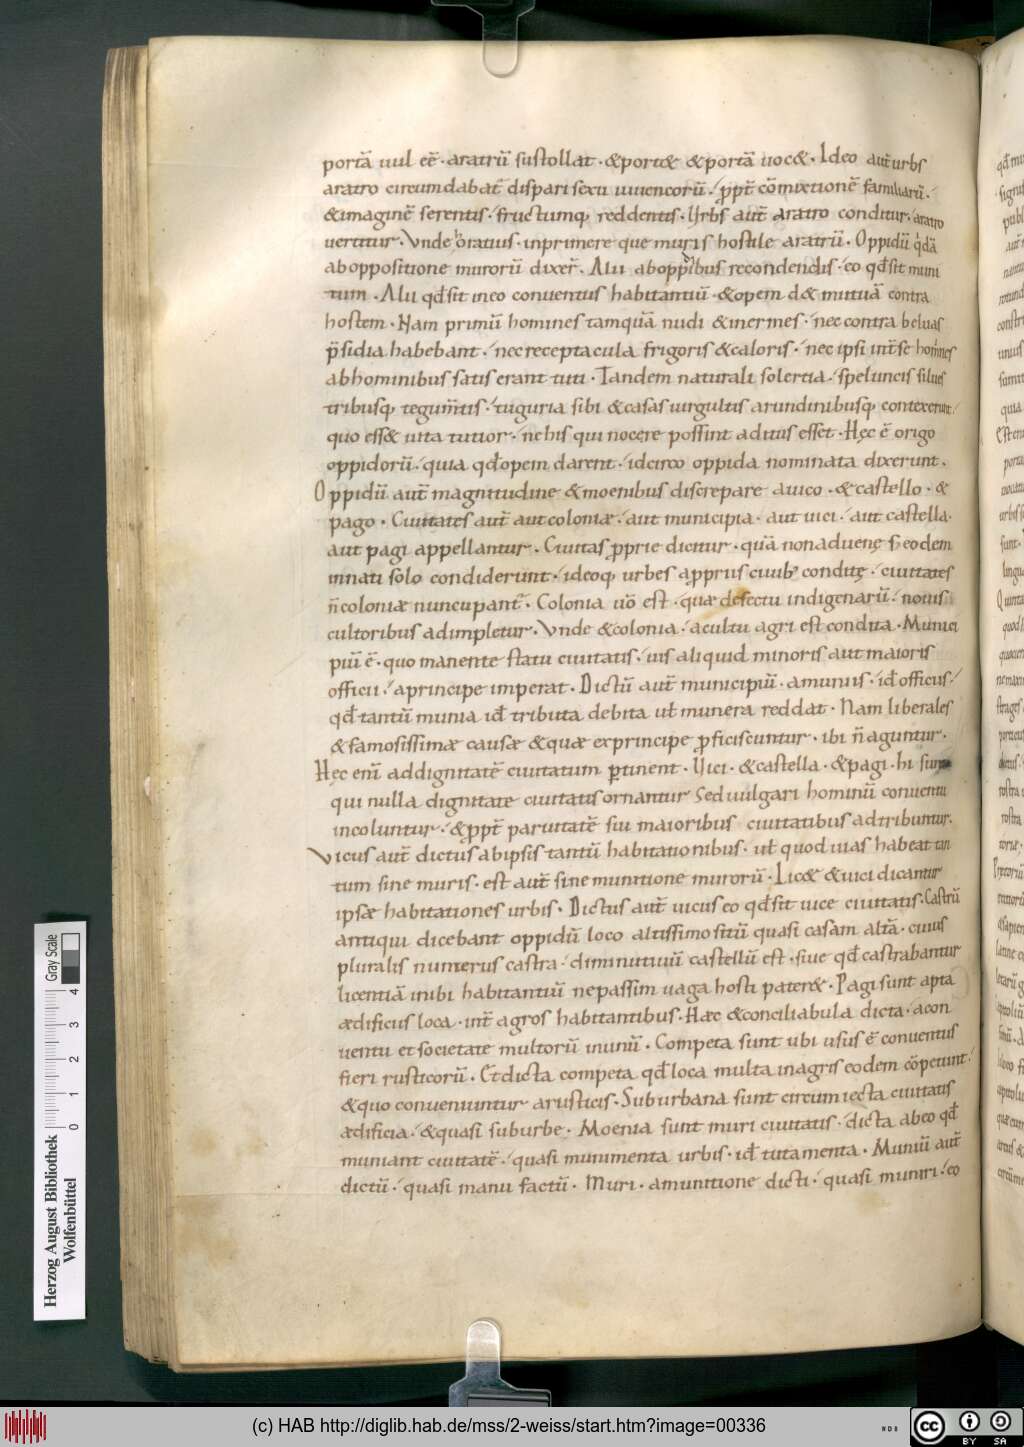 portā uul eē · aratrū sustollat · &port& &portā uoc& · Ideo aut̄ urbs
aratro circumdabat̄ dispari sexu iuuencorū · ꝓpt̄ cōmixtionē familiarū ·
& imaginē serentis · fructumq; reddentis · Urbs aut̄ aratro conditur · aratro
uertitur · Vnde horatius · inprimere que muris hostile aratrū · Oppidū qdā
ab oppositione murorū dixer̄ · Alii ab oppibus recondendis · eo qd̄ sit muni
tum · Alii qd̄ sit in eo conuentus habitantiū · & opem d& mutuā contra
hostem · Nam primū homines tamquā nudi & inermes · nec contra beluas
p̄sidia habebant · nec receptacula frigoris & caloris · nec ipsi int̄ se homines
ab hominibus satis erant tuti · Tandem naturali solertia · speluncis silues
tribusq; tegum̄tis · tuguria sibi & casas uirgultis arundinibusq; contexerunt ·
quo ess& uita tutior · ne his qui nocere possint aditus esset · Hęc ē origo
oppidorū · quia qd̄ opem darent · idcirco oppida nominata dixerunt ·
Oppidū aut̄ magnitudine & moenibus discrepare a uico · & castello · &
pago · Ciuitates aut̄ aut coloniæ · aut municipia · aut uici · aut castella ·
aut pagi appellantur · Ciuitas ꝓprie dicitur · quā non aduenę s; eodem
innati solo condiderunt · ideoq; urbes a ꝓpriis ciuib; conditę · ciuitates
n̄ coloniæ nuncupant̄ · Colonia uō est · quæ defectu indigenarū · nouis
cultoribus adimpletur · Vnde & colonia · a cultu agri est condita · Munici
piū ē · quo manente statu ciuitatis · ius aliquid minoris aut maioris
officii · a principe imperat · Dictū aut̄ municipiū · a muniis · id̄ officiis ·
qd̄ tantū munia id̄ tributa debita ut̄ munera reddat · Nam liberales
& famosissimæ causæ & quæ ex principe ꝓficiscuntur · ibi n̄ aguntur ·
Hęc eni ad dignitatē ciuitatum p̱tinent · Uici · & castella · & pagi · hi sunt
qui nulla dignitate ciuitatis ornantur Sed uulgari hominū conuentu
incoluntur · & ꝓpt̄ paruitatē sui maioribus ciuitatibus adtribuntur ·
Vicus aut̄ dictus ab ipsis tantū habitationibus · ut̄ quod uias habeat tan
tum sine muris · est aut̄ sine munitione murorū · Lic& & uici dicantur
ipsæ habitationes urbis · Dictus aut̄ uicus eo qd̄ sit uice ciuitatis · Castrū
antiqui dicebant oppidū loco altissimo sitū quasi casam altā · cuius
pluralis numerus castra · diminutiuū castellū est · siue qd̄ castrabantur
licentiā inibi habitantiū ne passim uaga hosti pater& · Pagi sunt apta
ædificiis loca · int̄ agros habitantibus · Hæc & conciliabula dicta · a con
uentu et societate multorū in unū · Competa sunt ubi usus ē conuentus
fieri rusticorū · Et dicta competa qd̄ loca multa in agris eodem cōpetunt ·
& quo conueniuntur a rusticis · Suburbana sunt circum iecta ciuitatis
ædificia · & quasi suburbe · Moenia sunt muri ciuitatis · dicta ab eo qd̄
muniant ciuitatē · quasi munimenta urbis · id̄ tutamenta · Muniū aut̄
dictū · quasi manu factū · Muri · a munitione dicti · quasi muniri · eo
Gray Scale
0 1 2 3 4
Herzog August Bibliothek
Wolfenbüttel
(c) HAB http://diglib.hab.de/mss/2-weiss/start.htm?image=00336
cc BY SA